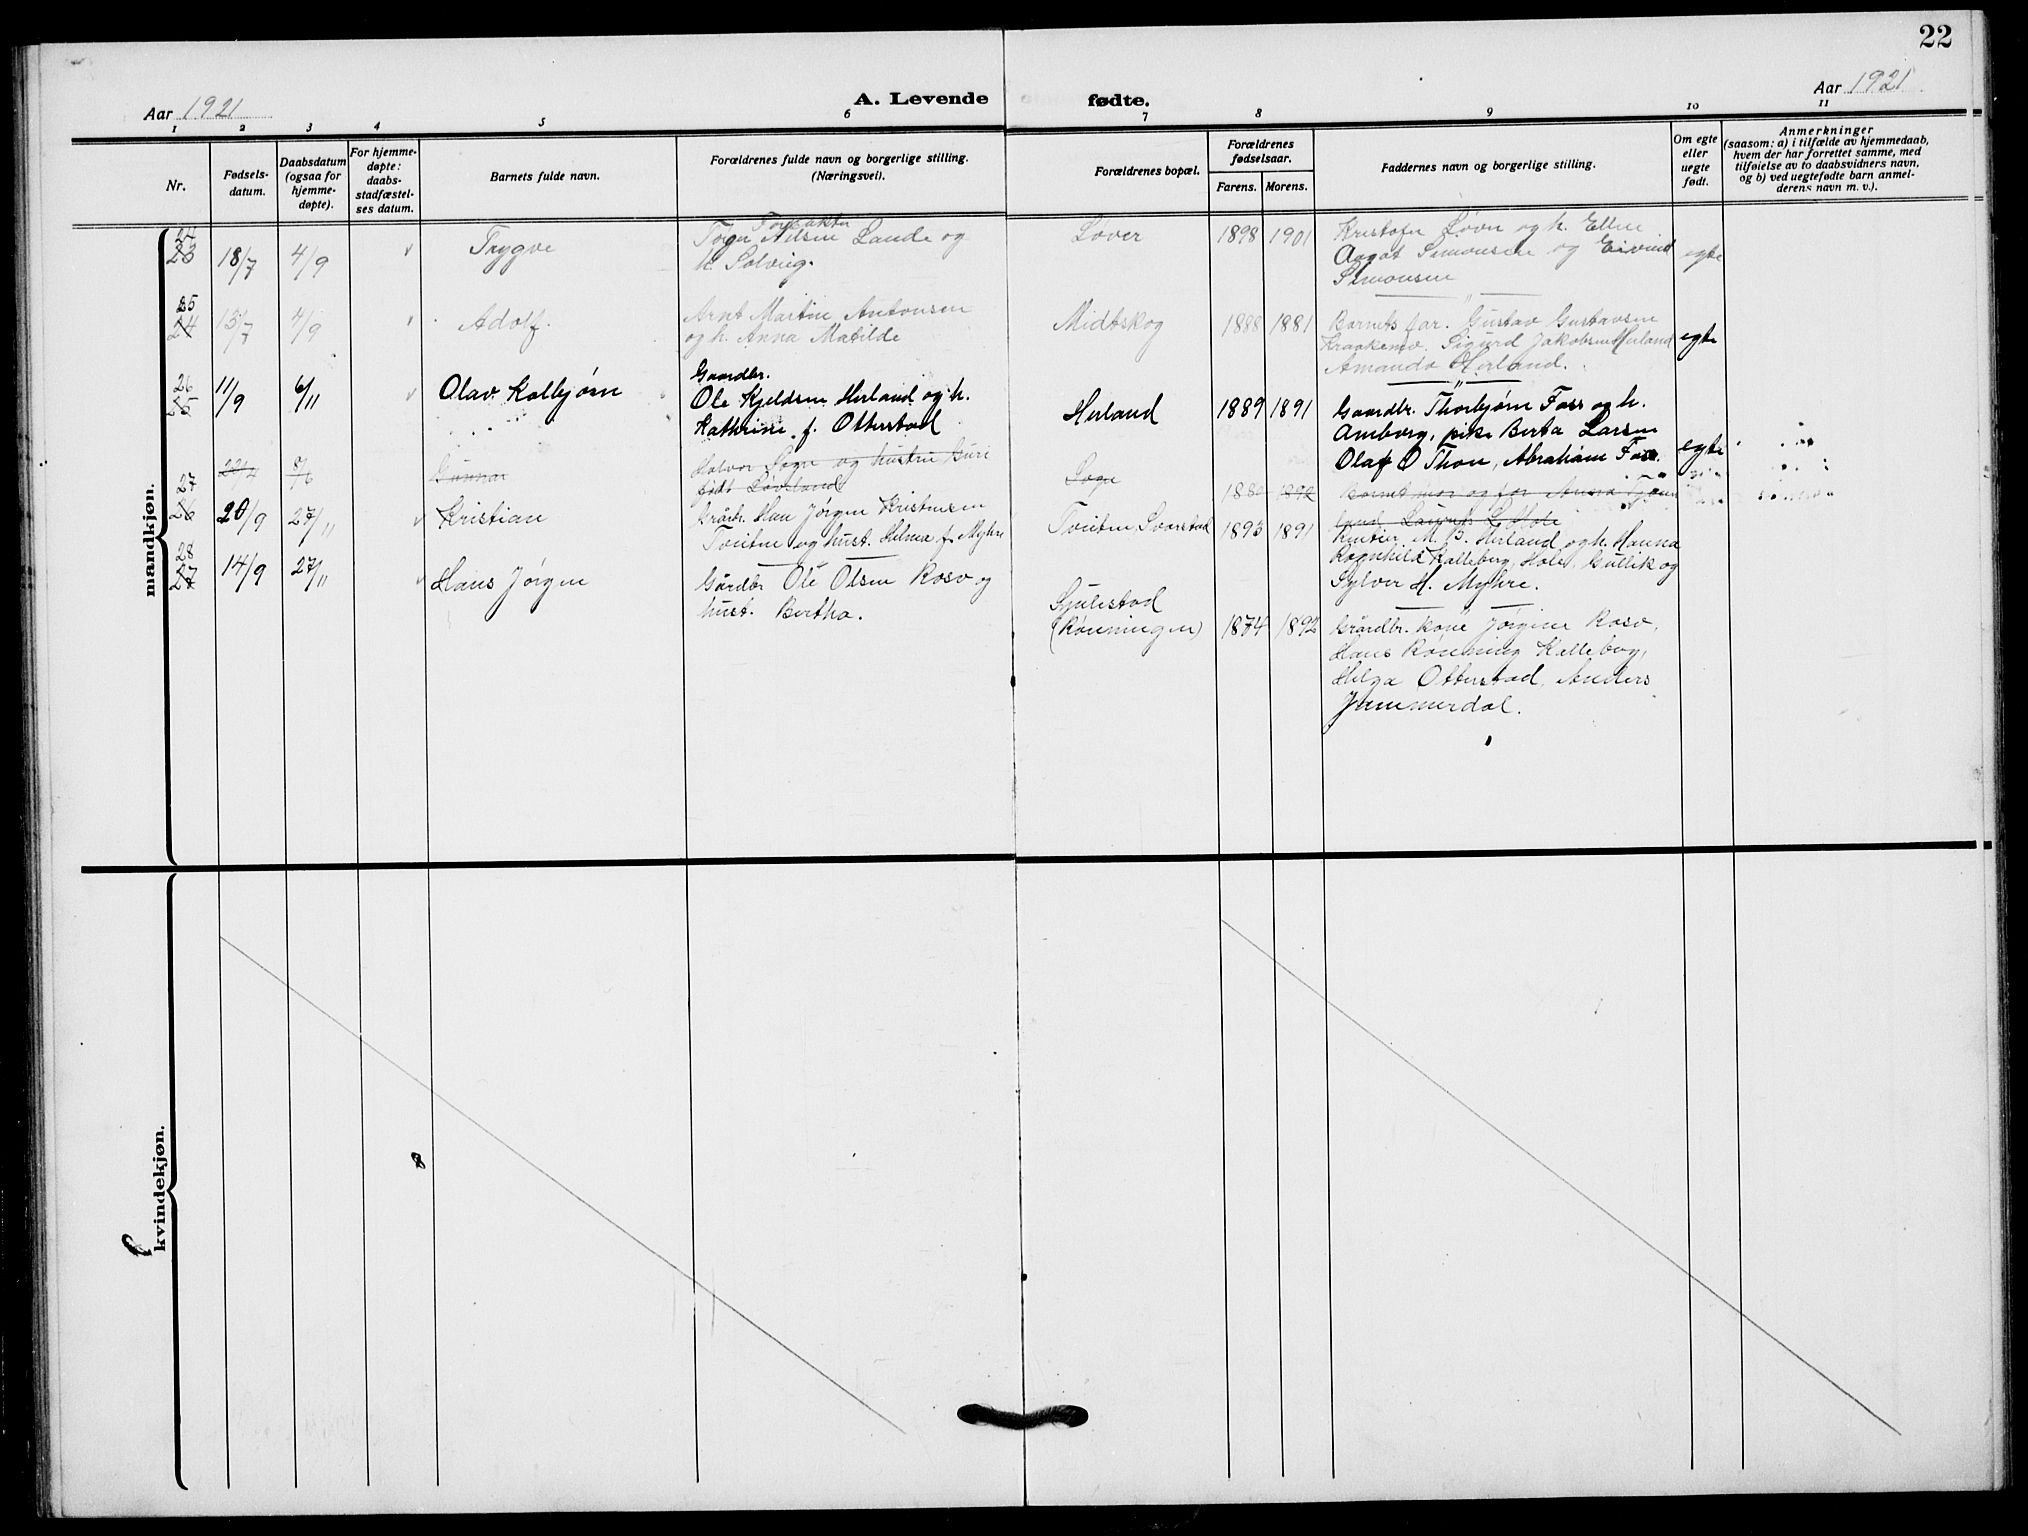 22
Aar 1921
A. Levende fødte.
Aar 1921
1 2 3 4 5 6 7 8 9 10 11
Nr.
Fødsels-
datum.
Daabsdatum
(ogsaa for
hjemme-
døpte).
For hjemme-
døpte:
daabs-
stadfæstel-
ses datum.
Barnets fulde navn.
Forældrenes fulde navn og borgerlige stilling.
(Næringsvei).
Forældrenes bopæl.
Forældrenes
fødselsaar.
Farens. Morens.
Faddernes navn og borgerlige stilling.
Om egte
eller
uegte
født.
Anmerkninger
(saasom: a) i tilfælde av hjemmedaab,
hvem der har forrettet samme, med
tilføielse av to daabsvidners navn,
og b) ved uegtefødte barn anmel-
derens navn m. v.).
mandkjøn.
24
23 18/7 4/9 Trygve
Nilsen Lande og
h. Solveig.
Løver 1898 1901
Kristofer Løver og h. Elline
Aagot Simonsen og Eivind
Simonsen
egte
25
24 13/7 4/9 Adolf.
Arnt Martin Antonsen
og h. Anna Matilde
Midtskog 1888 1881
Barnets far. Gustav Gustavsen
Kraakemo, Sigurd Jakobsen Herland
Amanda Herland.
egte
26
25 11/9 6/11 Olav Kolbjørn
Gaardbr.
Ole Kjeldsen Herland og h.
Kathrine f. Otterstad
Herland 1889 1891
Gaardbr. Thorbjørn Foss og h.
Amborg, pike Berta Larsen
Olaf O Thon, Abraham Foss.
egte
Gunnar
Halvor Sogn og hustru Guri
født Løvland
Sogn 1892
27
26 20/9 27/11 Kristian
Grbr. Han Jørgen Kristensen
Tveiten og hust. Helma f. Myhre
Tveiten Svarstad 1893 1891
M. B. Herland og h. Hanna
Ragnhild Kalleberg, Hole, Gullik og
Sylver H. Myhre.
28
27 14/9 27/11 Hans Jørgen
Gårdbr Ole Olsen Roso og
hust. Bertha.
Sjulestad
(Rønningen) 1874 1892
Gårdbr. kone Jørgine Roso,
Hans Rønning Kalleberg,
Helga Otterstad, Anders
Jammerdal.
kvindekjøn.